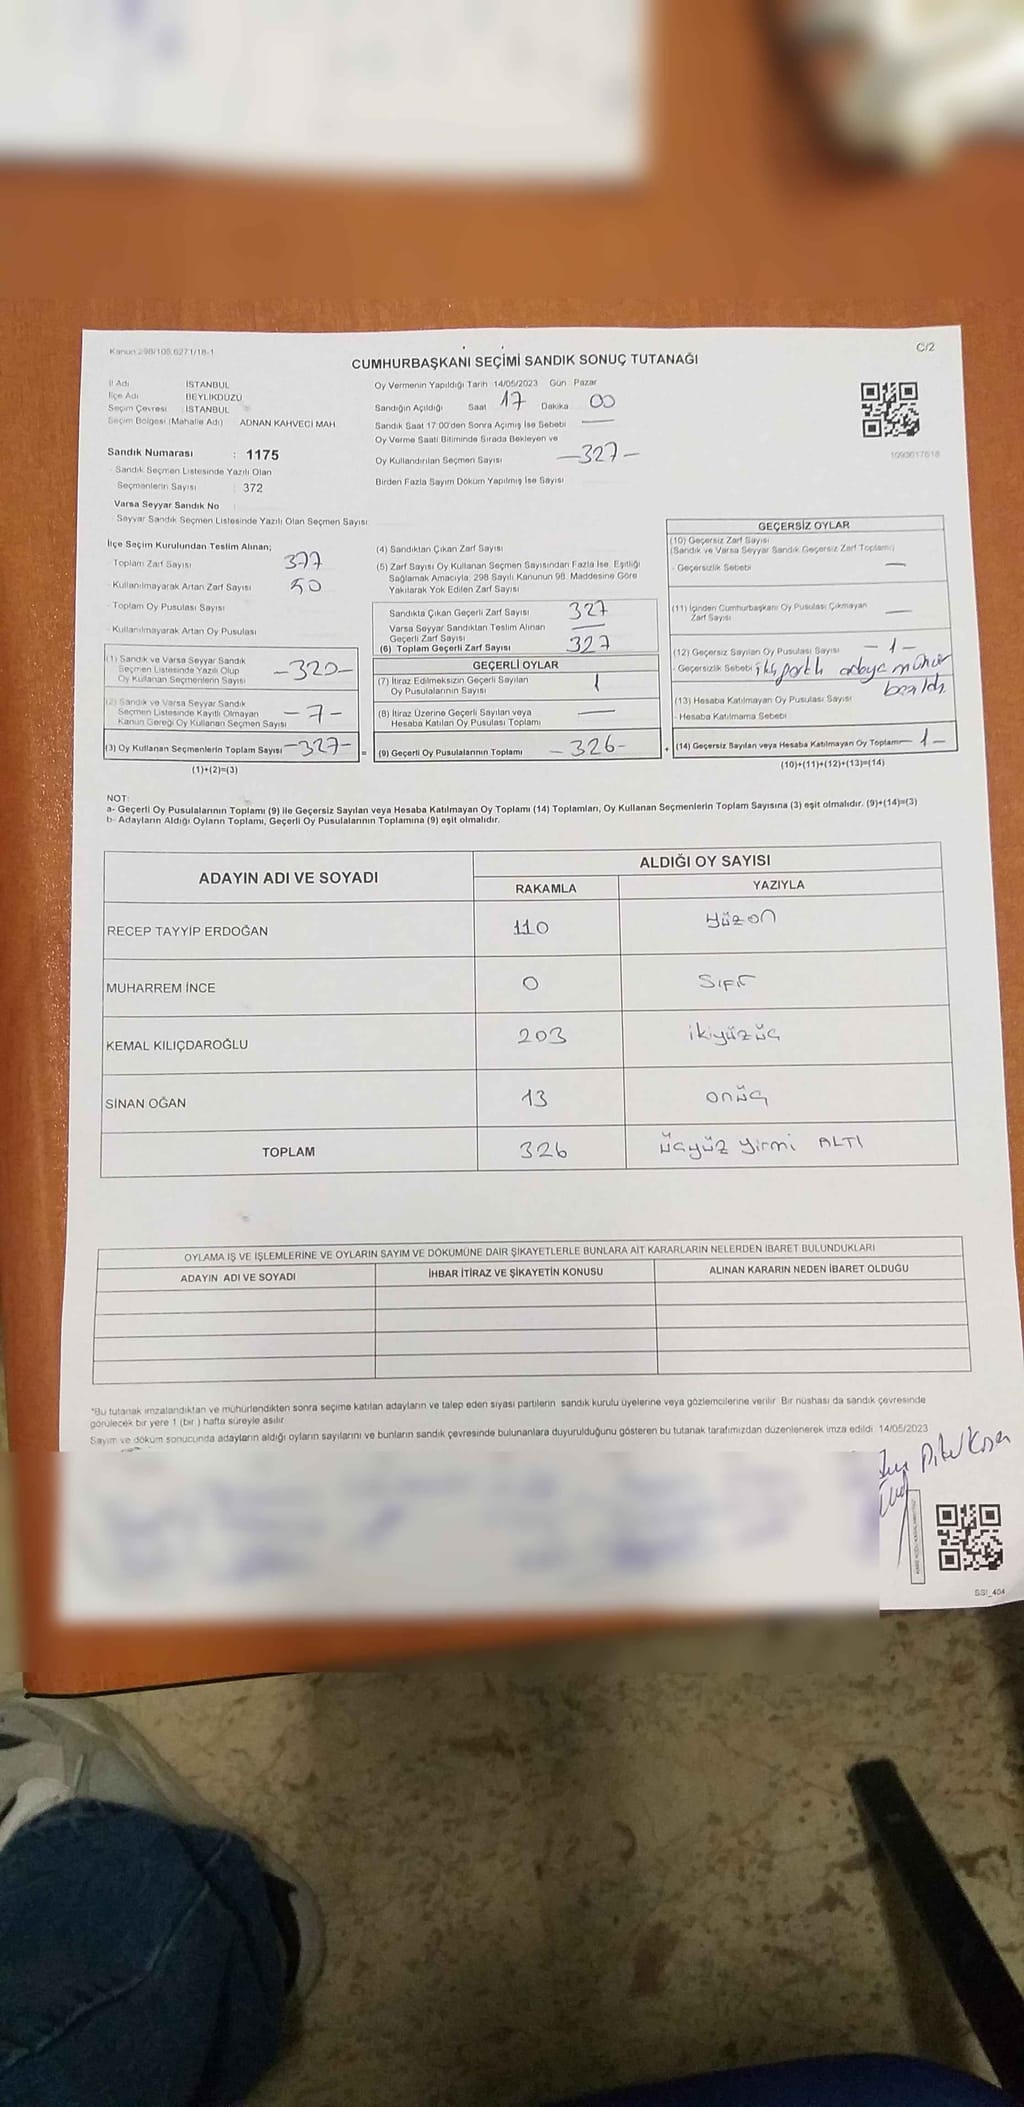 Kanun 298/105,6271/18-1
C/2
CUMHURBAŞKANI SEÇİMİ SANDIK SONUÇ TUTANAĞI
İl Adı İSTANBUL
İlçe Adı BEYLİKDÜZÜ
Seçim Çevresi : İSTANBUL
Seçim Bölgesi (Mahalle Adı) ADNAN KAHVECİ MAH.
Sandık Numarası : 1175
Sandık Seçmen Listesinde Yazılı Olan
Seçmenlerin Sayısı : 372
Varsa Seyyar Sandık No
Seyyar Sandık Seçmen Listesinde Yazılı Olan Seçmen Sayısı
Oy Vermenin Yapıldığı Tarih 14/05/2023 Gün : Pazar
Sandığın Açıldığı Saat 17 Dakika 00
Sandık Saat 17:00'den Sonra Açımış İse Sebebi —
Oy Verme Saati Bitiminde Sırada Bekleyen ve
Oy Kullandırılan Seçmen Sayısı —327—
Birden Fazla Sayım Döküm Yapılmış İse Sayısı
1093617618
İlçe Seçim Kurulundan Teslim Alınan;
- Toplam Zarf Sayısı 377
- Kullanılmayarak Artan Zarf Sayısı 50
- Toplam Oy Pusulası Sayısı
- Kullanılmayarak Artan Oy Pusulası
(1) Sandık ve Varsa Seyyar Sandık
Seçmen Listesinde Yazılı Olup
Oy Kullanan Seçmenlerin Sayısı —320—
(2) Sandık ve Varsa Seyyar Sandık
Seçmen Listesinde Kayıtlı Olmayan
Kanun Gereği Oy Kullanan Seçmen Sayısı —7—
(3) Oy Kullanan Seçmenlerin Toplam Sayısı —327— =
(1)+(2)=(3)
(4) Sandıktan Çıkan Zarf Sayısı
(5) Zarf Sayısı Oy Kullanan Seçmen Sayısından Fazla İse, Eşitliği
Sağlamak Amacıyla, 298 Sayılı Kanunun 98. Maddesine Göre
Yakılarak Yok Edilen Zarf Sayısı
Sandıkta Çıkan Geçerli Zarf Sayısı 327
Varsa Seyyar Sandıktan Teslim Alınan
Geçerli Zarf Sayısı —
(6) Toplam Geçerli Zarf Sayısı 327
GEÇERLİ OYLAR
(7) İtiraz Edilmeksizin Geçerli Sayılan
Oy Pusulalarının Sayısı 1
(8) İtiraz Üzerine Geçerli Sayılan veya
Hesaba Katılan Oy Pusulası Toplamı —
(9) Geçerli Oy Pusulalarının Toplamı —326— +
GEÇERSİZ OYLAR
(10) Geçersiz Zarf Sayısı
(Sandık ve Varsa Seyyar Sandık Geçersiz Zarf Toplamı)
- Geçersizlik Sebebi —
(11) İçinden Cumhurbaşkanı Oy Pusulası Çıkmayan
Zarf Sayısı —
(12) Geçersiz Sayılan Oy Pusulası Sayısı —1—
- Geçersizlik Sebebi iki mühür
(13) Hesaba Katılmayan Oy Pusulası Sayısı
- Hesaba Katılmama Sebebi
(14) Geçersiz Sayılan veya Hesaba Katılmayan Oy Toplamı —1—
(10)+(11)+(12)+(13)=(14)
NOT:
a- Geçerli Oy Pusulalarının Toplamı (9) ile Geçersiz Sayılan veya Hesaba Katılmayan Oy Toplamı (14) Toplamları, Oy Kullanan Seçmenlerin Toplam Sayısına (3) eşit olmalıdır. (9)+(14)=(3)
b- Adayların Aldığı Oyların Toplamı, Geçerli Oy Pusulalarının Toplamına (9) eşit olmalıdır.
ADAYIN ADI VE SOYADI
ALDIĞI OY SAYISI
RAKAMLA YAZIYLA
RECEP TAYYİP ERDOĞAN 110 yüzon
MUHARREM İNCE 0 SIFIR
KEMAL KILIÇDAROĞLU 203 ikiyüzüç
SİNAN OĞAN 13 onüç
TOPLAM 326 üçyüz yirmi ALTI
OYLAMA İŞ VE İŞLEMLERİNE VE OYLARIN SAYIM VE DÖKÜMÜNE DAİR ŞİKAYETLERLE BUNLARA AİT KARARLARIN NELERDEN İBARET BULUNDUKLARI
ADAYIN ADI VE SOYADI İHBAR İTİRAZ VE ŞİKAYETİN KONUSU ALINAN KARARIN NEDEN İBARET OLDUĞU
*Bu tutanak imzalandıktan ve mühürlendikten sonra seçime katılan adayların ve talep eden siyasi partilerin sandık kurulu üyelerine veya gözlemcilerine verilir. Bir nüshası da sandık çevresinde
görülecek bir yere 1 (bir ) hafta süreyle asılır.
Sayım ve döküm sonucunda adayların aldığı oyların sayılarını ve bunların sandık çevresinde bulunanlara duyurulduğunu gösteren bu tutanak tarafımızdan düzenlenerek imza edildi. 14/05/2023
SSİ_404